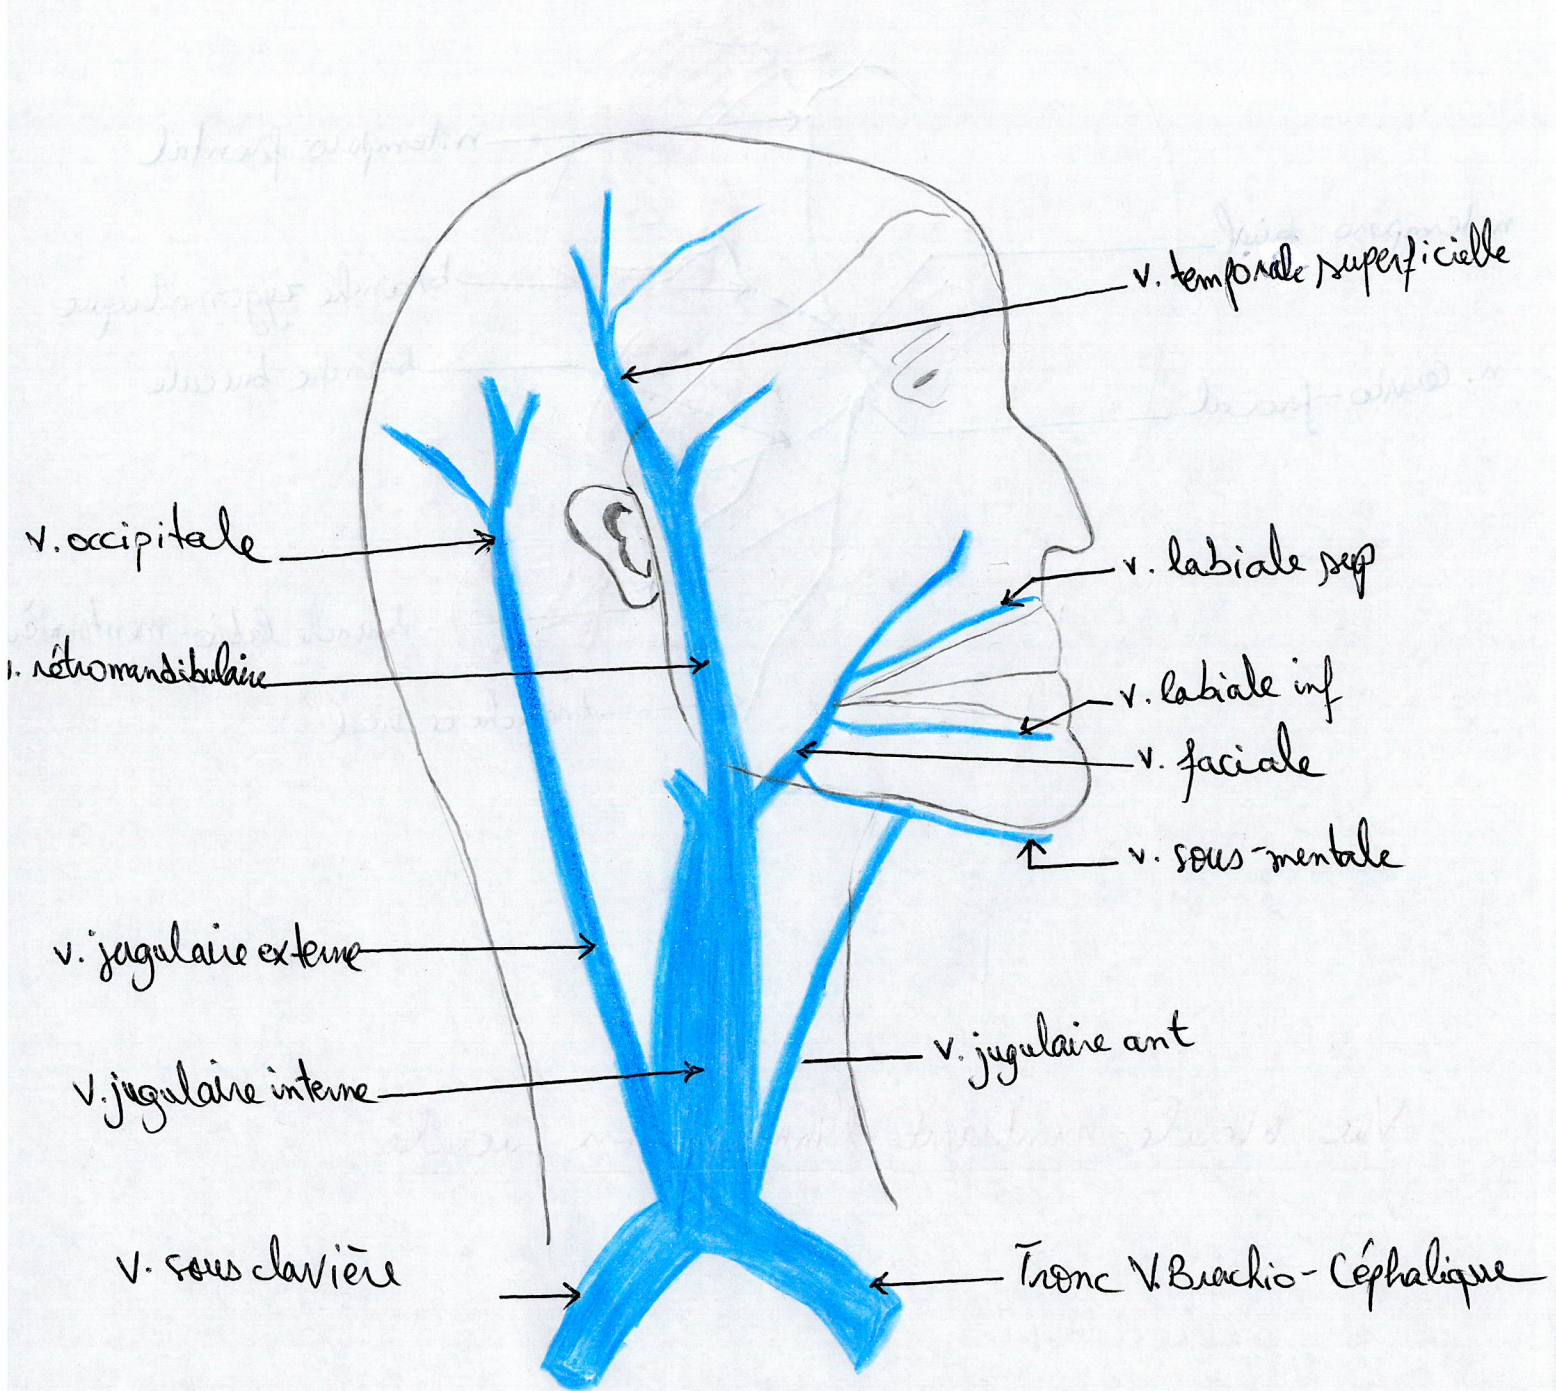 v. temporale superficielle
v. occipitale
v. labiale sup
. rétromandibulaire
v. labiale inf
v. faciale
v. sous-mentale
v. jugulaire externe
v. jugulaire ant
v. jugulaire interne
v. sous clavière
Tronc V. Brachio-Céphalique